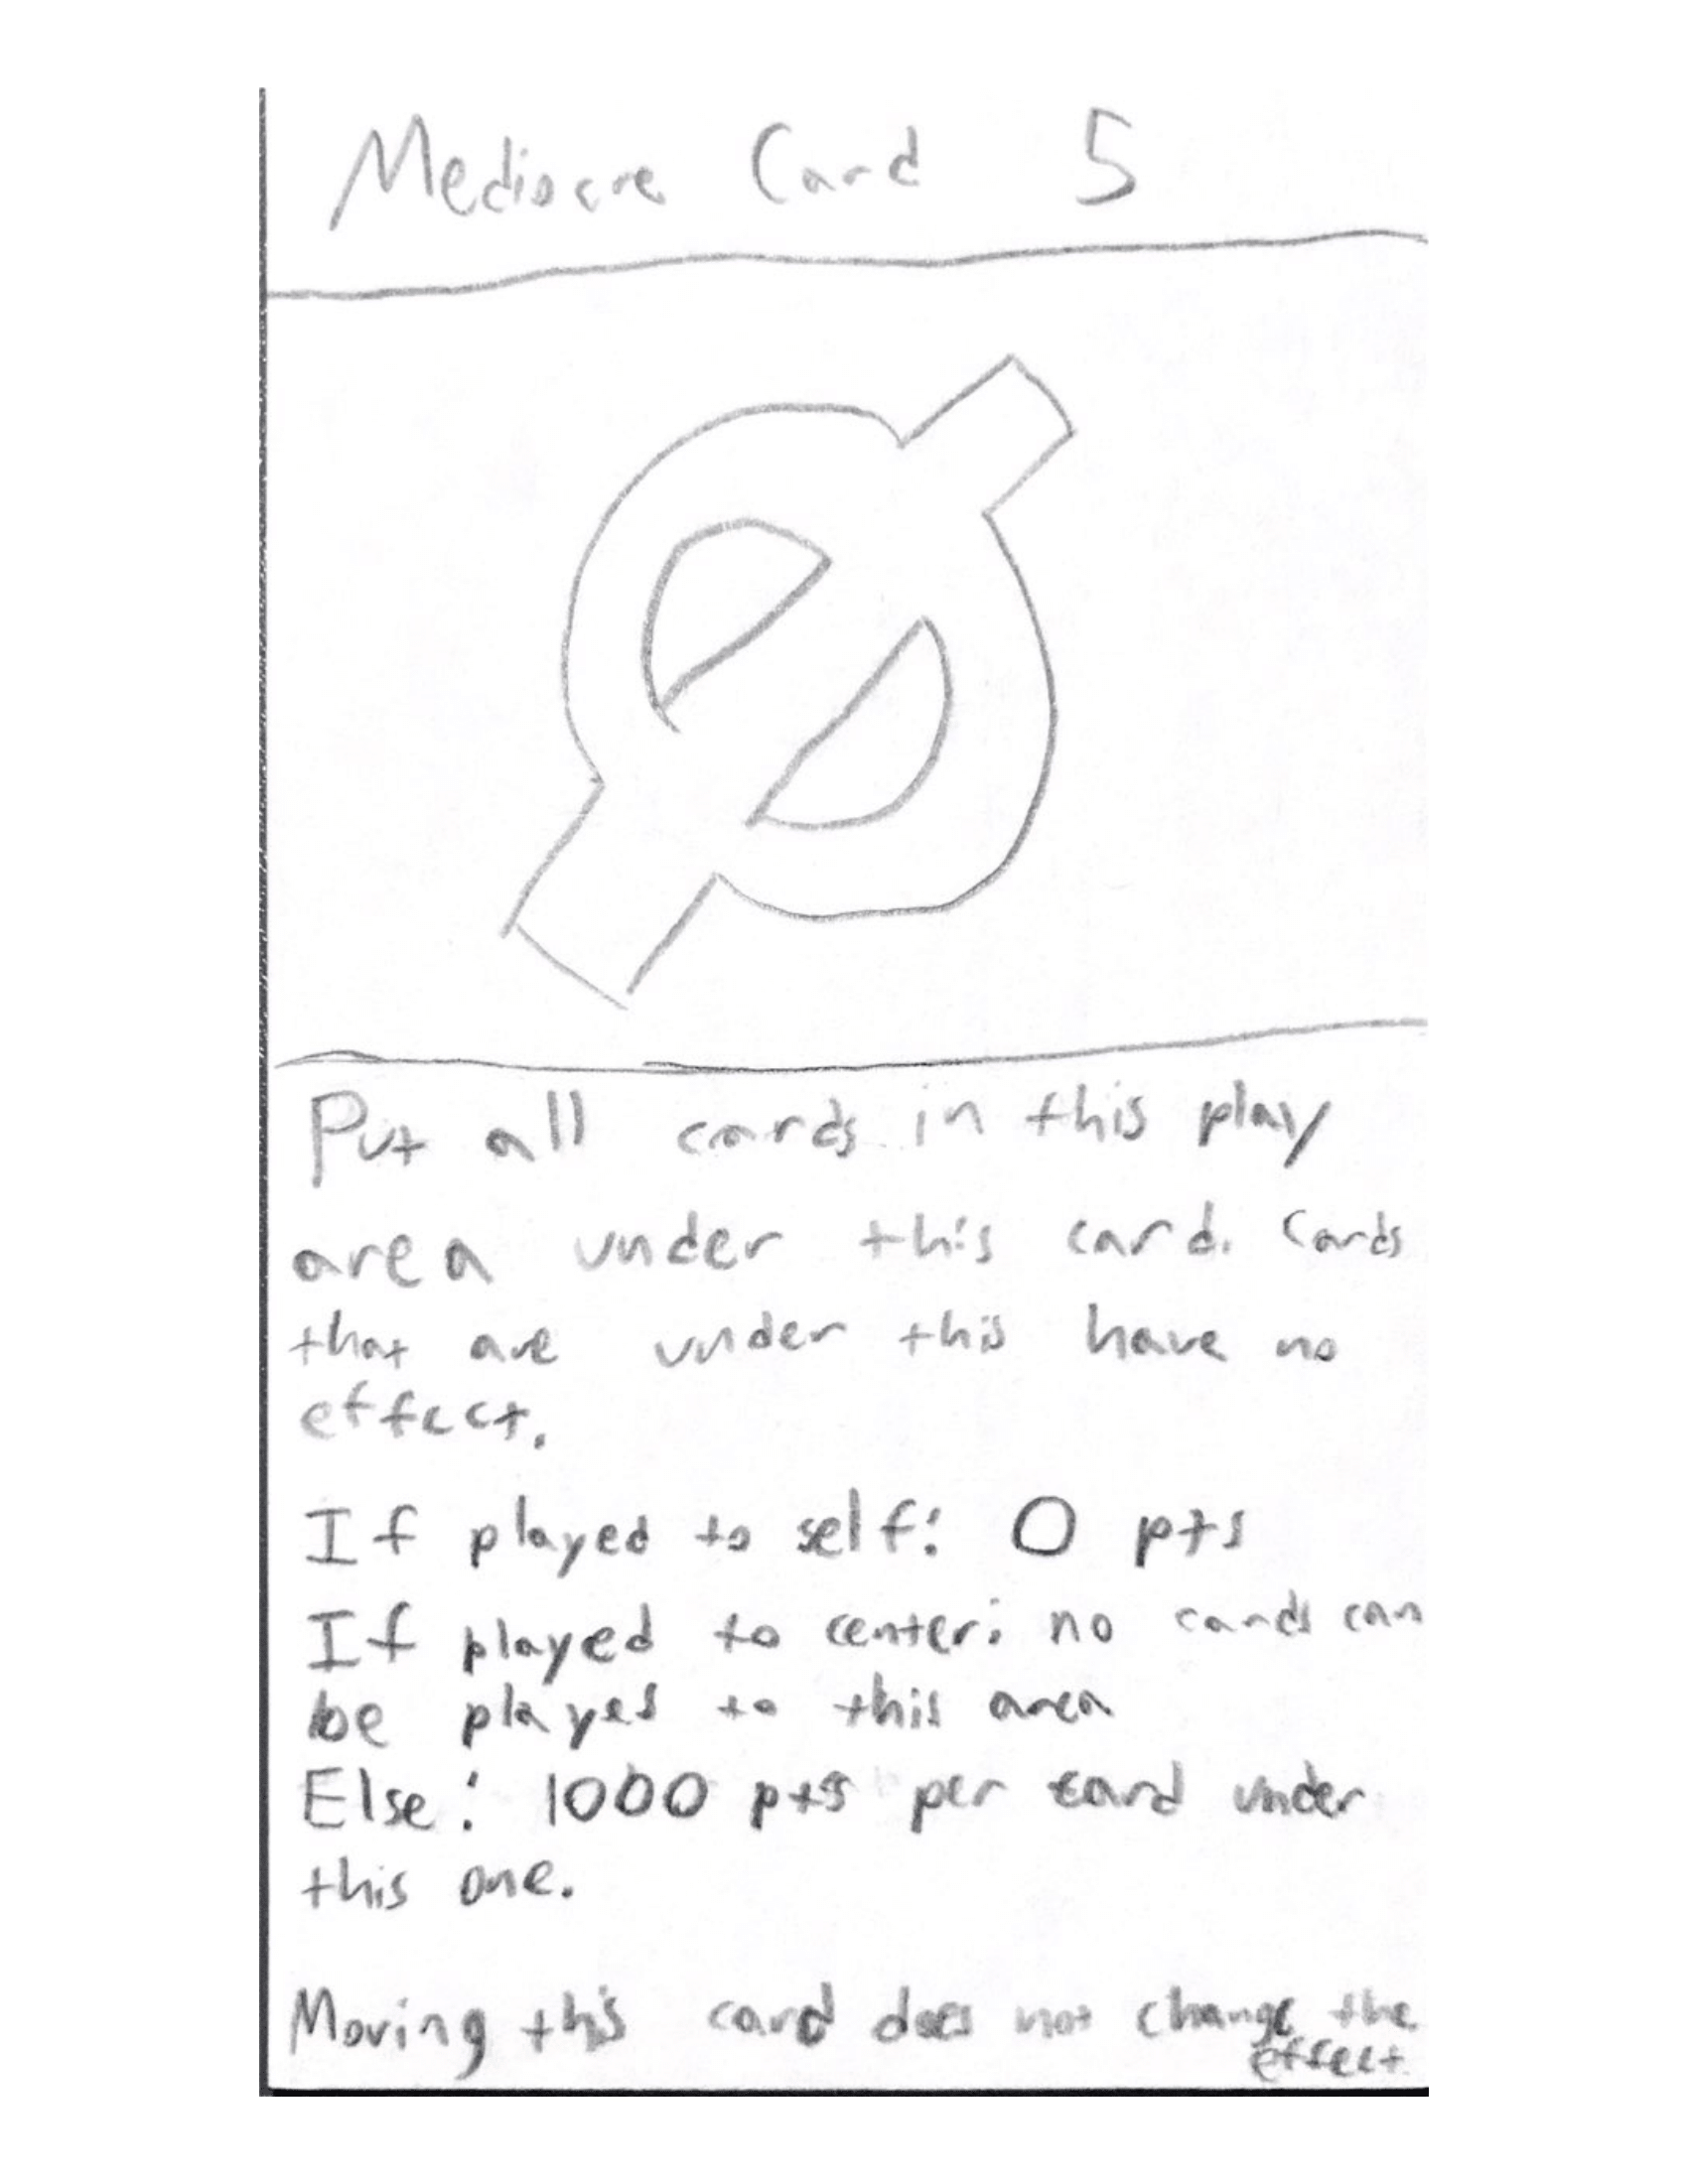 Mediocre Card 5
Put all cards in this play
area under this card. Cards
that are under this have no
effect.
If played to self: 0 pts
If played to center: no cards can
be played to this area
Else: 1000 pts per card under
this one.
Moving this card does not change the
effect.